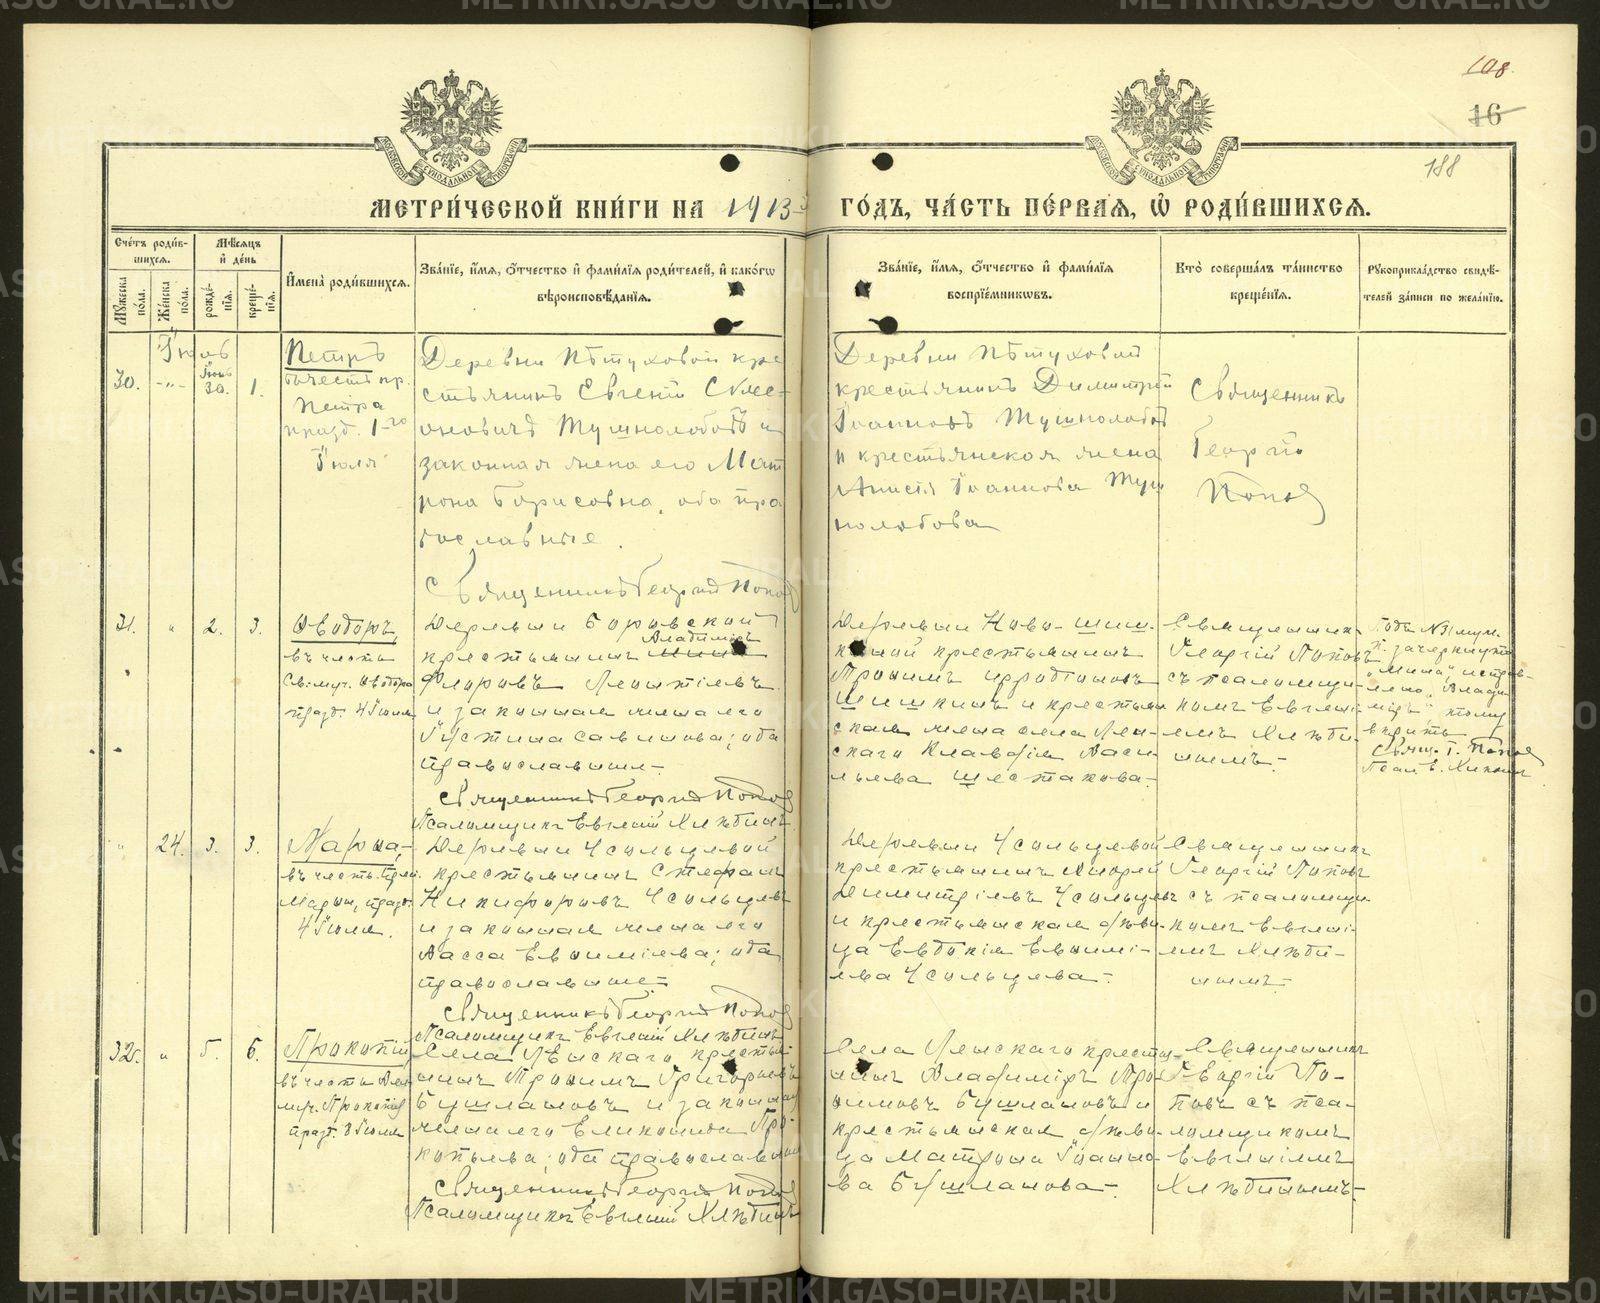 108.
16
188
МЕТРИ́ЧЕСКОЙ КНИ́ГИ НА 1913-й ГО́ДЪ, ЧА́СТЬ ПЕ́РВАЯ, Ѡ҆ РОДИ́ВШИХСЯ.
Сче́тъ роди́в-
шихся.
Мѣ́сяцъ
и҆ де́нь
Му́жеска по́ла.
Же́нска по́ла.
рожде́-
нїя.
креще́-
нїя.
И҆мена̀ роди́вшихся.
Зва́нїе, и҆́мя, ѻ҆́тчество и҆ фами́лїя роди́телей, и҆ како́гѡ
вѣроисповѣ́данїя.
Зва́нїе, и҆́мя, ѻ҆́тчество и҆ фами́лїя
воспрїе́мниковъ.
Кто̀ соверша́лъ та́инство
креще́нїя.
Рукоприкла́дство свидѣ́-
телей за́писи по жела́нїю.
Іюль
30.
-"-
Іюнь
30.
1.
Петръ
въ честь пр.
Петра
празд. 1-го
Іюля
Деревни Пѣтуховой кре
стьянинъ Евгеній Сѵме-
оновичъ Тушнолобовъ и
законная жена его Мат
рона Борисовна, оба пра
вославные.
Священникъ Георгій Поповъ
Деревни Пѣтуховой
крестьянинъ Димитрій
Іоанновъ Тушнолобовъ
и крестьянская жена
Анисія Іоаннова Туш
нолобова
Священникъ
Георгій
Поповъ
31.
"
2.
3.
Ѳеодоръ,
въ честь
св. муч. Ѳеодора
празд. 4 Іюля
Деревни Боровской
Владиміръ
крестьянинъ
Флоровъ Леонтіевъ
и законная жена его
Іустина Саввинова; оба
православные.-
Священникъ Георгій Поповъ
Псаломщикъ Евгеній Хлѣбинъ
Деревни Ново-Шиш-
киной крестьянинъ
Трофимъ Иродіоновъ
Шишкинъ и крестьян
ская жена села Лен-
скаго Клавдія Васи-
льева Шестакова.-
Священникъ
Георгій Поповъ
съ псаломщи-
комъ Евгені-
емъ Хлѣби-
нымъ.-
Подъ №31 муж.
п. зачеркнуто
исправ-
лено "Влади-
міръ", тому
вѣрить
Свящ. Г. Поповъ
Псал. Е. Хлѣбинъ
"
24.
3.
3.
Марѳа,-
въ честь Преп.
Марѳы, празд.
4 Іюля.
Деревни Усольцевой
крестьянинъ Стефанъ
Никифоровъ Усольцевъ
и законная жена его
Васса Евфиміева; оба
православные.-
Священникъ Георгій Поповъ
Псаломщикъ Евгеній Хлѣбинъ
Деревни Усольцевой
крестьянинъ Андрей
Димитріевъ Усольцевъ
и крестьянская дѣви-
ца Евдокія Евфимі-
ева Усольцева.-
Священникъ
Георгій Поповъ
съ псаломщи-
комъ Евгені-
емъ Хлѣби-
нымъ.-
32.
"
5.
6.
Прокопій
въ честь
муч. Прокопія
празд. 8 Іюля
Села Ленскаго, крестья-
нинъ Трофимъ Григорьевъ
Бушлановъ и законная
жена его Еликонида Про-
копьева; оба православные
Священникъ Георгій Поповъ
Псаломщикъ Евгеній Хлѣбинъ
Села Ленскаго кресть-
янинъ Владиміръ Тро-
фимовъ Бушлановъ и
крестьянская дѣви-
ца Матрона Іоанно-
ва Бушланова.-
Священникъ
Георгій По-
повъ съ пса-
ломщикомъ
Евгеніемъ
Хлѣбинымъ.-
METRIKI.GASO-URAL.RU